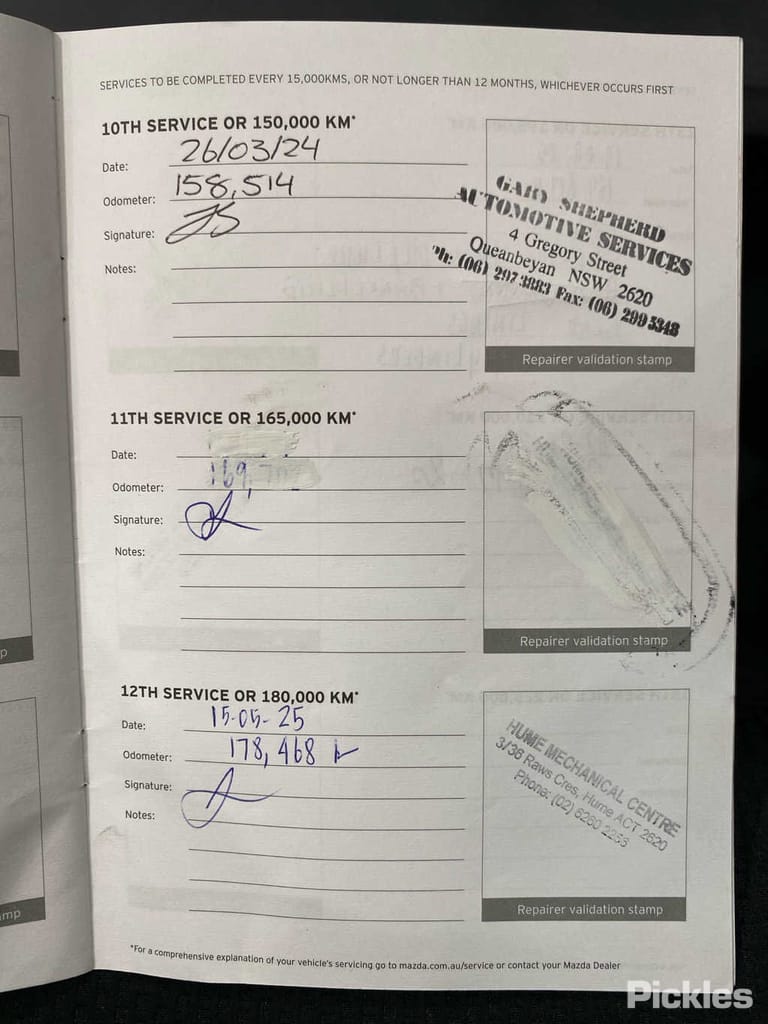 SERVICES TO BE COMPLETED EVERY 15,000KMS, OR NOT LONGER THAN 12 MONTHS, WHICHEVER OCCURS FIRST
10TH SERVICE OR 150,000 KM*
Date: 26/03/24
Odometer: 158,514
Signature:
Notes:
GARY SHEPHERD
AUTOMOTIVE SERVICES
4 Gregory Street
Queanbeyan NSW 2620
Ph: (06) 297 3883 Fax: (06) 299 3348
Repairer validation stamp
11TH SERVICE OR 165,000 KM*
Date:
Odometer: 169,
Signature:
Notes:
Repairer validation stamp
12TH SERVICE OR 180,000 KM*
Date: 15-05-25
Odometer: 178,468
Signature:
Notes:
HUME MECHANICAL CENTRE
3/36 Raws Cres, Hume ACT 2620
Phone: (02) 6260 2256
Repairer validation stamp
*For a comprehensive explanation of your vehicle's servicing go to mazda.com.au/service or contact your Mazda Dealer
p
amp
Pickles